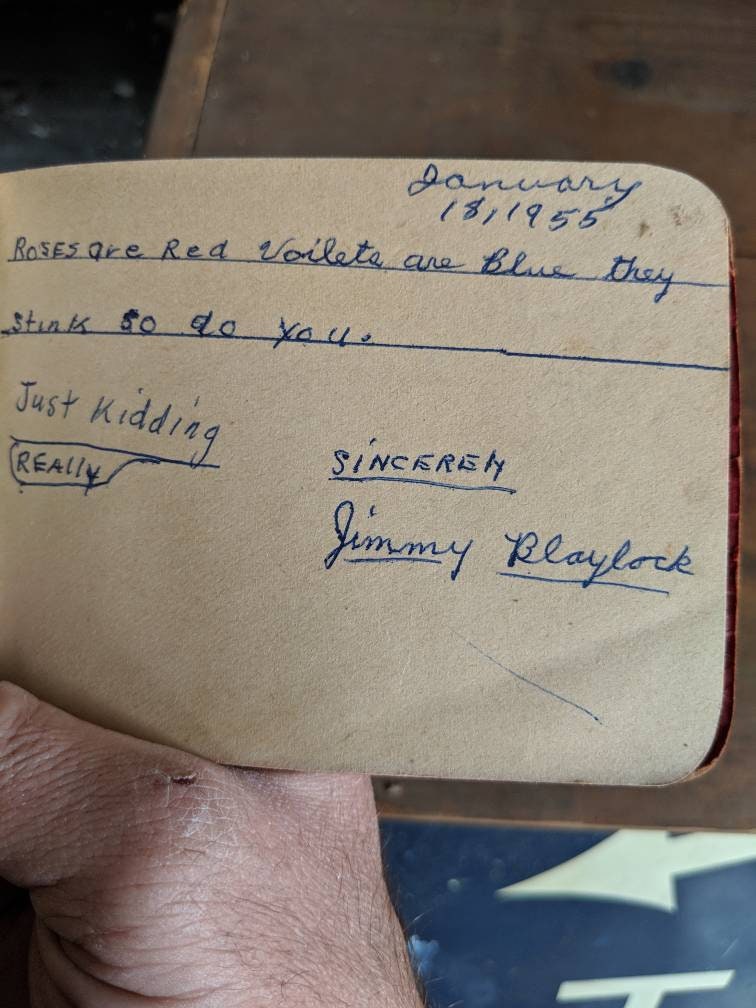 January
18, 1955
Roses are Red Voilets are Blue they
Stink so do you.
Just Kidding
REAlly
SINCERELY
Jimmy Blaylock